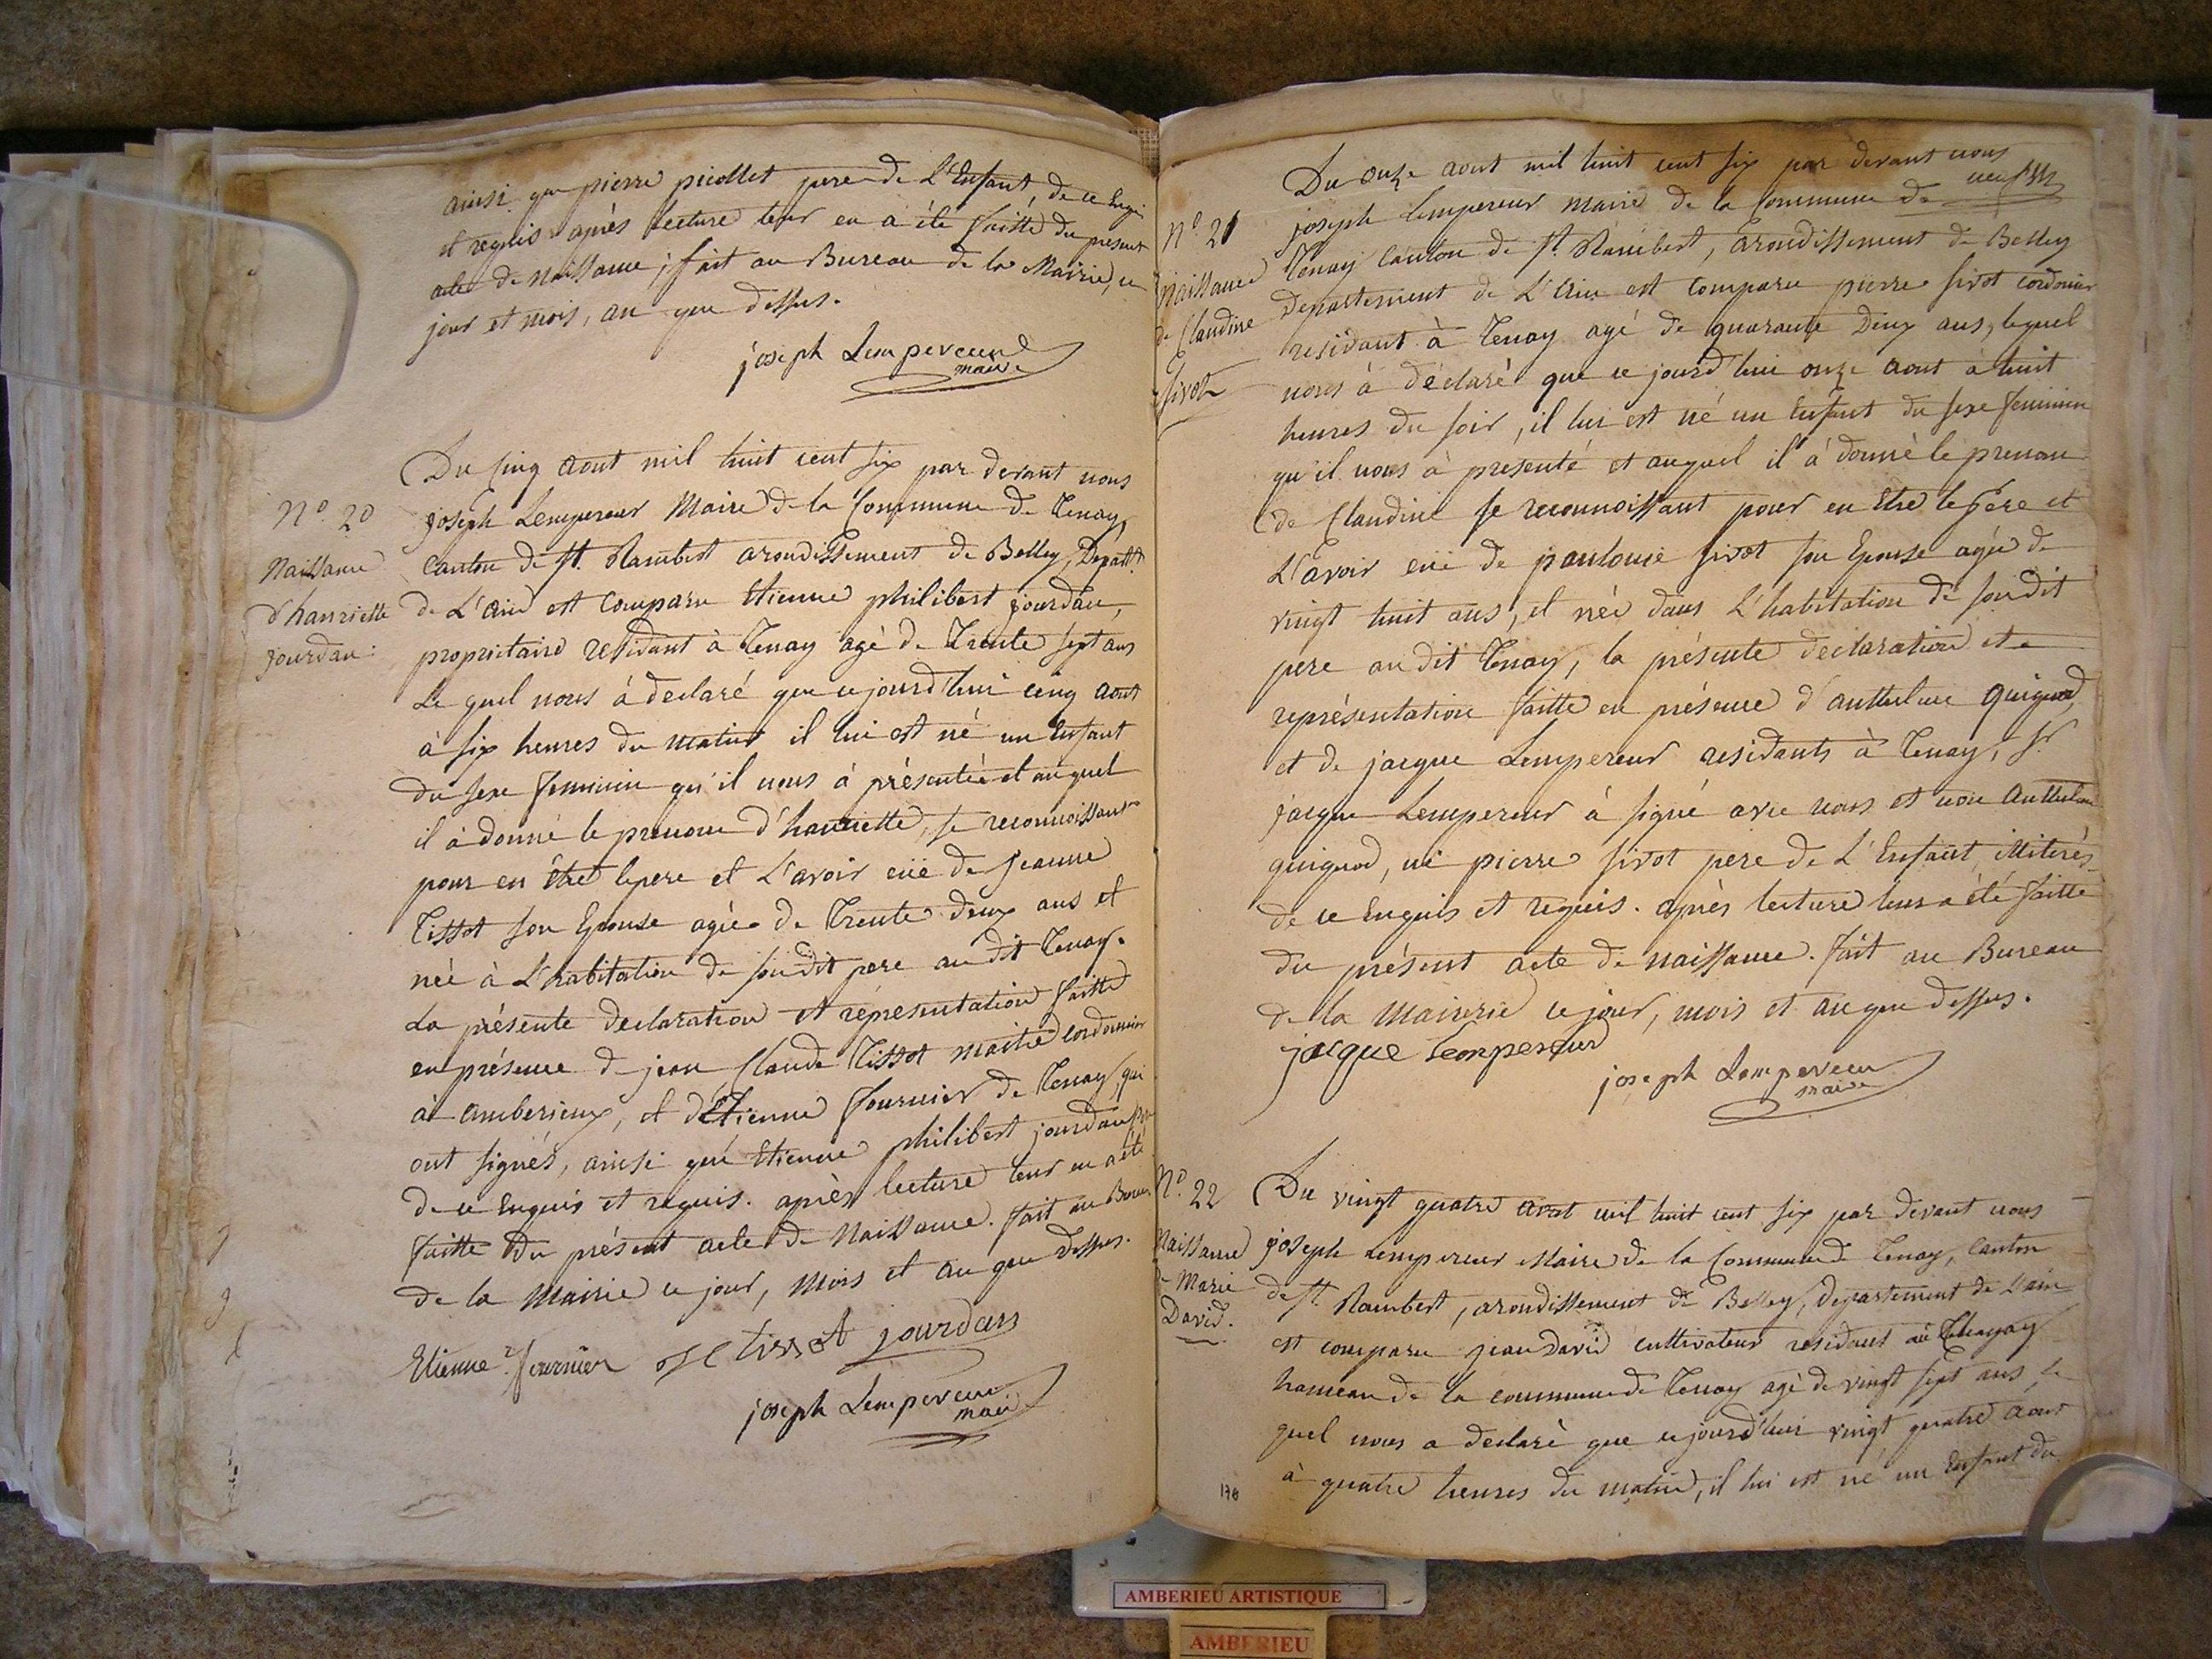 ainsi que pierre picollet pere de L'Enfant, de ce Enqui
et requis après lecture leur en a été faitte du present
acte de Naissance ; fait au Bureau de la Mairie, ce
jour et mois, an que dessus.
joseph Lempereur
maire
Nº 20
Naissance
d'hanriette
jourdan:
Du Cinq Aout mil huit cent six par devant nous
joseph Lempereur Maire de la Commune de Tenay,
Canton de St. Rambert arondissement de Belley, Depart.t
de L'Ain est Comparu Etienne philibert jourdan,
propriétaire residant à Tenay agé de Trente sept ans
Le quel nous à declaré que cejourd'hui cinq Aout
à six heures du matin il lui est né un Enfant
du sexe feminin qu'il nous à présentée et auquel
il à donné le prenom d'hanriette, se reconnoissant
pour en être le pere et L'avoir eüe de Jeanne
Tissot son Epouse agée de Trente deux ans et
née à L'habitation de sondit pere audit Tenay.
La présente declaration et representation faitte
en présence de jean Claude Tissot maitre cordonnier
à amberieux, et d'Etienne fournier de Tenay, qui
ont signés, ainsi que Etienne philibert jourdan
de ce Enquis et requis. après lecture leur en a été
faitte du présent acte de Naissance. fait au Bureau
de la Mairie ce jour, Mois et an que dessus.
Etienne fournier JC tissot jourdan
joseph Lempereur
maire
Nº 21
Naissance
de Claudine
sivot
Du onze aout mil huit cent six par devant nous
joseph Lempereur Maire de la Commune de
Tenay Canton de St. Rambert, arondissement de Belley
Departement de L'Ain est Comparu pierre sivot cordonier
residant à Tenay agé de quarante Deux ans, lequel
nous à déclaré que ce jourd'hui onze Aout à huit
heures du soir, il lui est né un Enfant du sexe feminin
qu'il nous à presenté et auquel il à donné le prenom
de Claudine se reconnoissant pour en Etre le pére et
L'avoir eüe de panlouie sivot son Epouse agée de
vingt huit ans, et née dans L'habitation de sondit
pere audit Tenay, la présente declaration et
représentation faitte en présence d'anthelme quignod
et de jacque Lempereur residants à Tenay, sr
jacque Lempereur à signé avec nous et non Anthelme
quignod, ni pierre sivot pere de L'Enfant, illiterés
de ce Enquis et requis. après lecture leur a été faitte
du présent acte de naissance. fait au Bureau
de la Mairerie ce jour, mois et an que dessus.
jacque Lempereur
joseph Lempereur
maire
Nº 22
Naissance
de Marie
David.
Du vingt quatre aout mil huit cent six par devant nous
joseph Lempereur Maire de la Commune de Tenay, Canton
de St. Rambert, arondissement de Belley, departement de L'ain
est comparu jean David cultivateur residant au
hameau de la commune de Tenay agé de vingt sept ans, le
quel nous a declaré que cejourd'hui vingt quatre Aout
à quatre heures du matin, il lui est né un Enfant du
170
AMBERIEU ARTISTIQUE
AMBERIEU